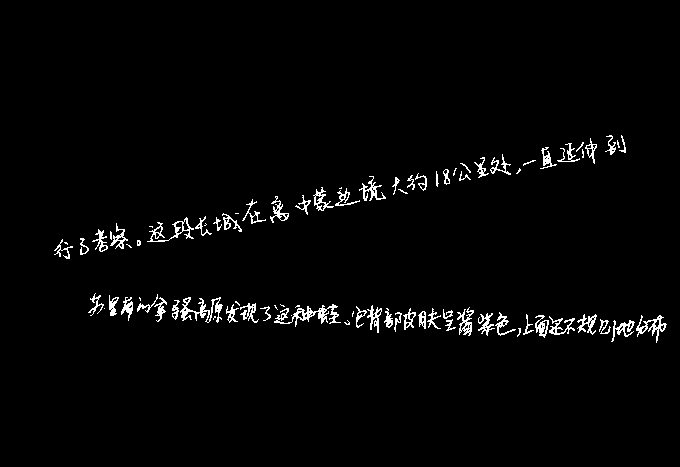 行了考察。这段长城在离中蒙边境大约18公里处,一直延伸到
高原发现了这种蛙。它背部皮肤呈酱紫色,上面还不规则地分布